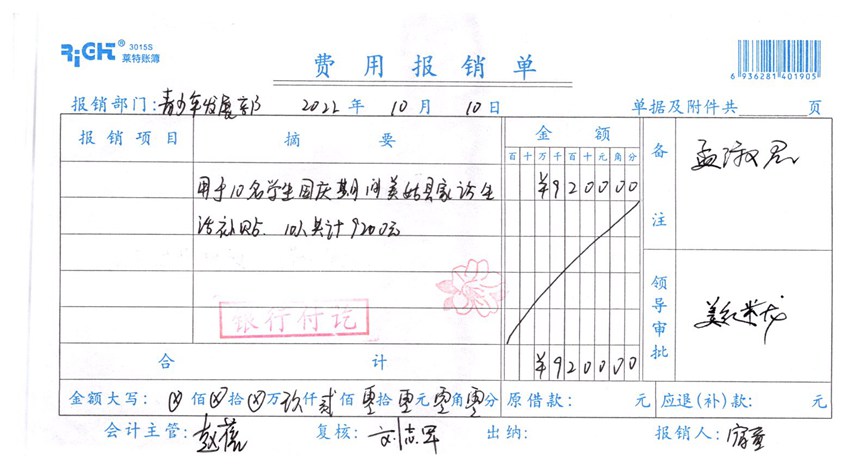 RiGHT® 3015S
莱特账簿
费用报销单
6 936281 401905
报销部门:青少年发展部 2022年10月10日 单据及附件共 页
报销项目 摘要 金额 备注
百十万千百十元角分
用于10名学生国庆期间美姑县家访生 ¥920000
活补贴. 10人共计9200元
银行付讫
领导审批
合计 ¥920000
金额大写: ⊗佰⊗拾⊗万玖仟贰佰零拾零元零角零分 原借款: 元 应退(补)款: 元
会计主管: 复核: 刘志军 出纳: 报销人: